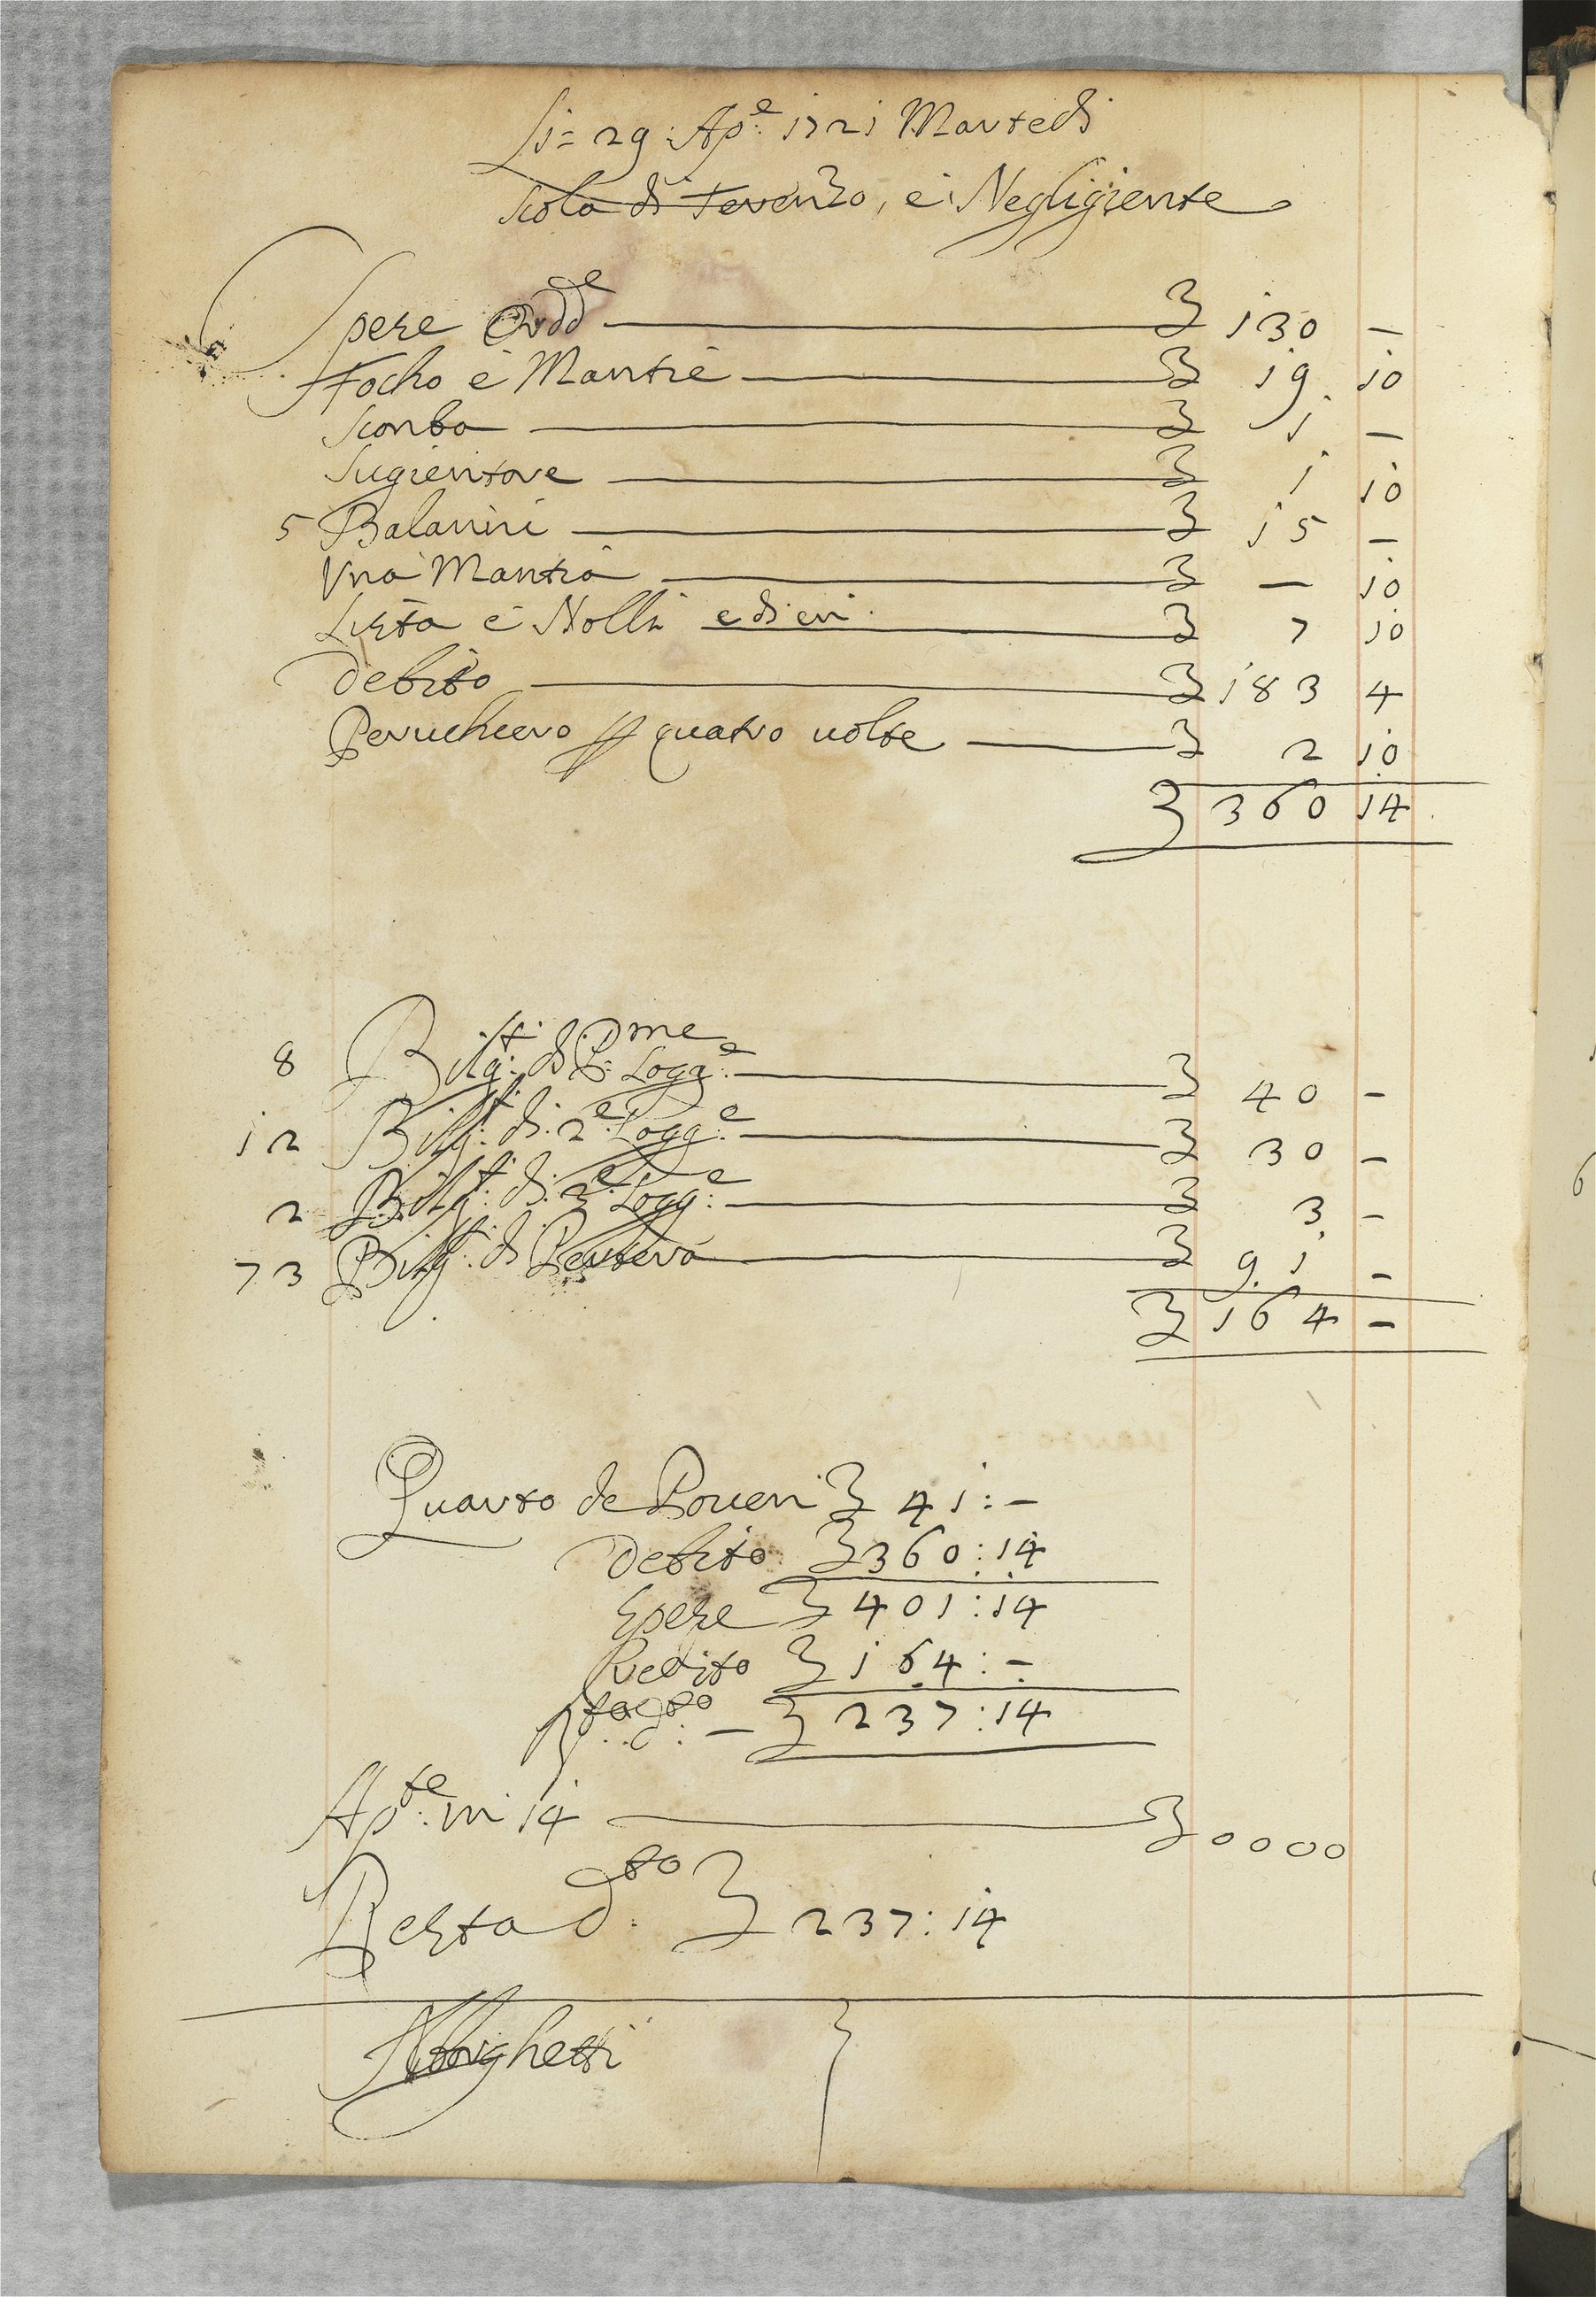 Li= 29: Ap:e 1721 Martedi
Scola di Terenzo, è Negligiente
Spese Ordd.e — 130 —
Focho è Mantie — 19 10
Sconbo — 1 —
Sugieritore — 1 10
5 Balarini — 15 —
Vna Mantia — — 10
Lista è Nolli e dieri — 7 10
Debito — 183 4
Peruchiero quatro uolte — 2 10
360 14
8 Bilg:tti di P:me Logg:e — 40 —
12 Bilg:tti di: 2:e Logg:e — 30 —
2 Bilg:tti di: 3:e Logg:e — 3 —
73 Bilg:tti di Plantera — 91 —
164 —
Quarto de Poueri 41: —
Debito 360:14
Spese 401:14
Credito 164: —
Rta d:to — 237:14
Ap:te in 14 — 0000
Resta d:to 237:14
Abrighetti